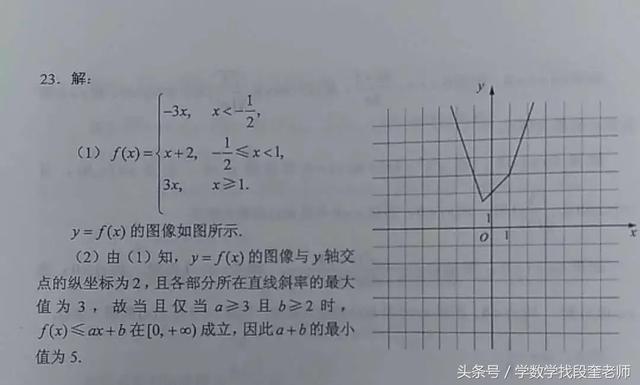 23. 解:
(1) f(x)={-3x, x<-1/2,
x+2, -1/2≤x<1,
3x, x≥1.
y=f(x) 的图像如图所示.
(2) 由 (1) 知, y=f(x) 的图像与 y 轴交
点的纵坐标为 2, 且各部分所在直线斜率的最大
值为 3, 故当且仅当 a≥3 且 b≥2 时,
f(x)≤ax+b 在[0,+∞) 成立, 因此 a+b 的最小
值为 5.
y
1
O 1
x
头条号 / 学数学找段奎老师